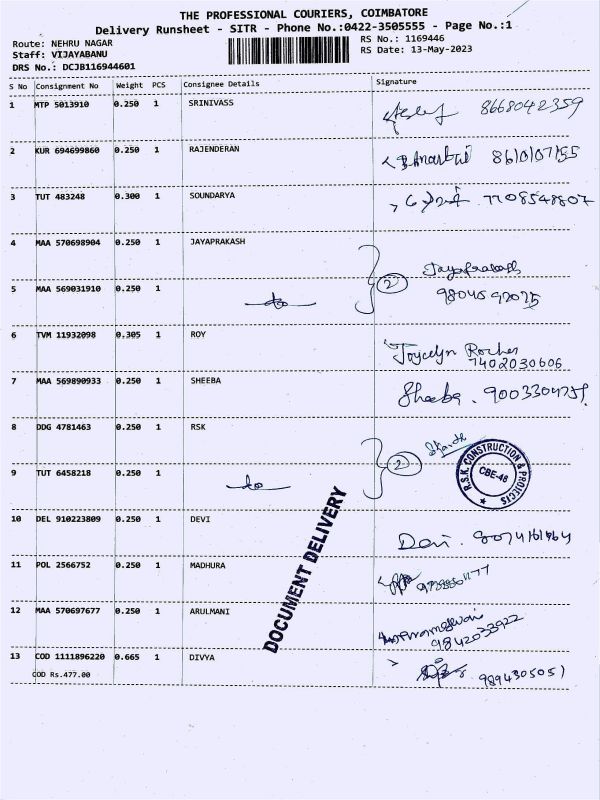 THE PROFESSIONAL COURIERS, COIMBATORE
Delivery Runsheet - SITR - Phone No.:0422-3505555 - Page No.:1
Route: NEHRU NAGAR
RS No.: 1169446
Staff: VIJAYABANU
RS Date: 13-May-2023
DRS No.: DCJB116944601
S No Consignment No Weight PCS Consignee Details Signature
1 MTP 5013910 0.250 1 SRINIVASS 8668042359
2 KUR 694699860 0.250 1 RAJENDERAN
3 TUT 483248 0.300 1 SOUNDARYA 7708548807
4 MAA 570698904 0.250 1 JAYAPRAKASH Jayaprakash
5 MAA 569031910 0.250 1 do 2
6 TVM 11932098 0.305 1 ROY Joycelyn
7402030606
7 MAA 569890933 0.250 1 SHEEBA Sheeba.
8 DDG 4781463 0.250 1 RSK
9 TUT 6458218 0.250 1 do 2
R.S.K. CONSTRUCTION & PROJECTS
CBE-48
10 DEL 910223809 0.250 1 DEVI Devi.
11 POL 2566752 0.250 1 MADHURA
12 MAA 570697677 0.250 1 ARULMANI
9842033922
13 COD 1111896220 0.665 1 DIVYA 9894305051
COD Rs.477.00
DOCUMENT DELIVERY